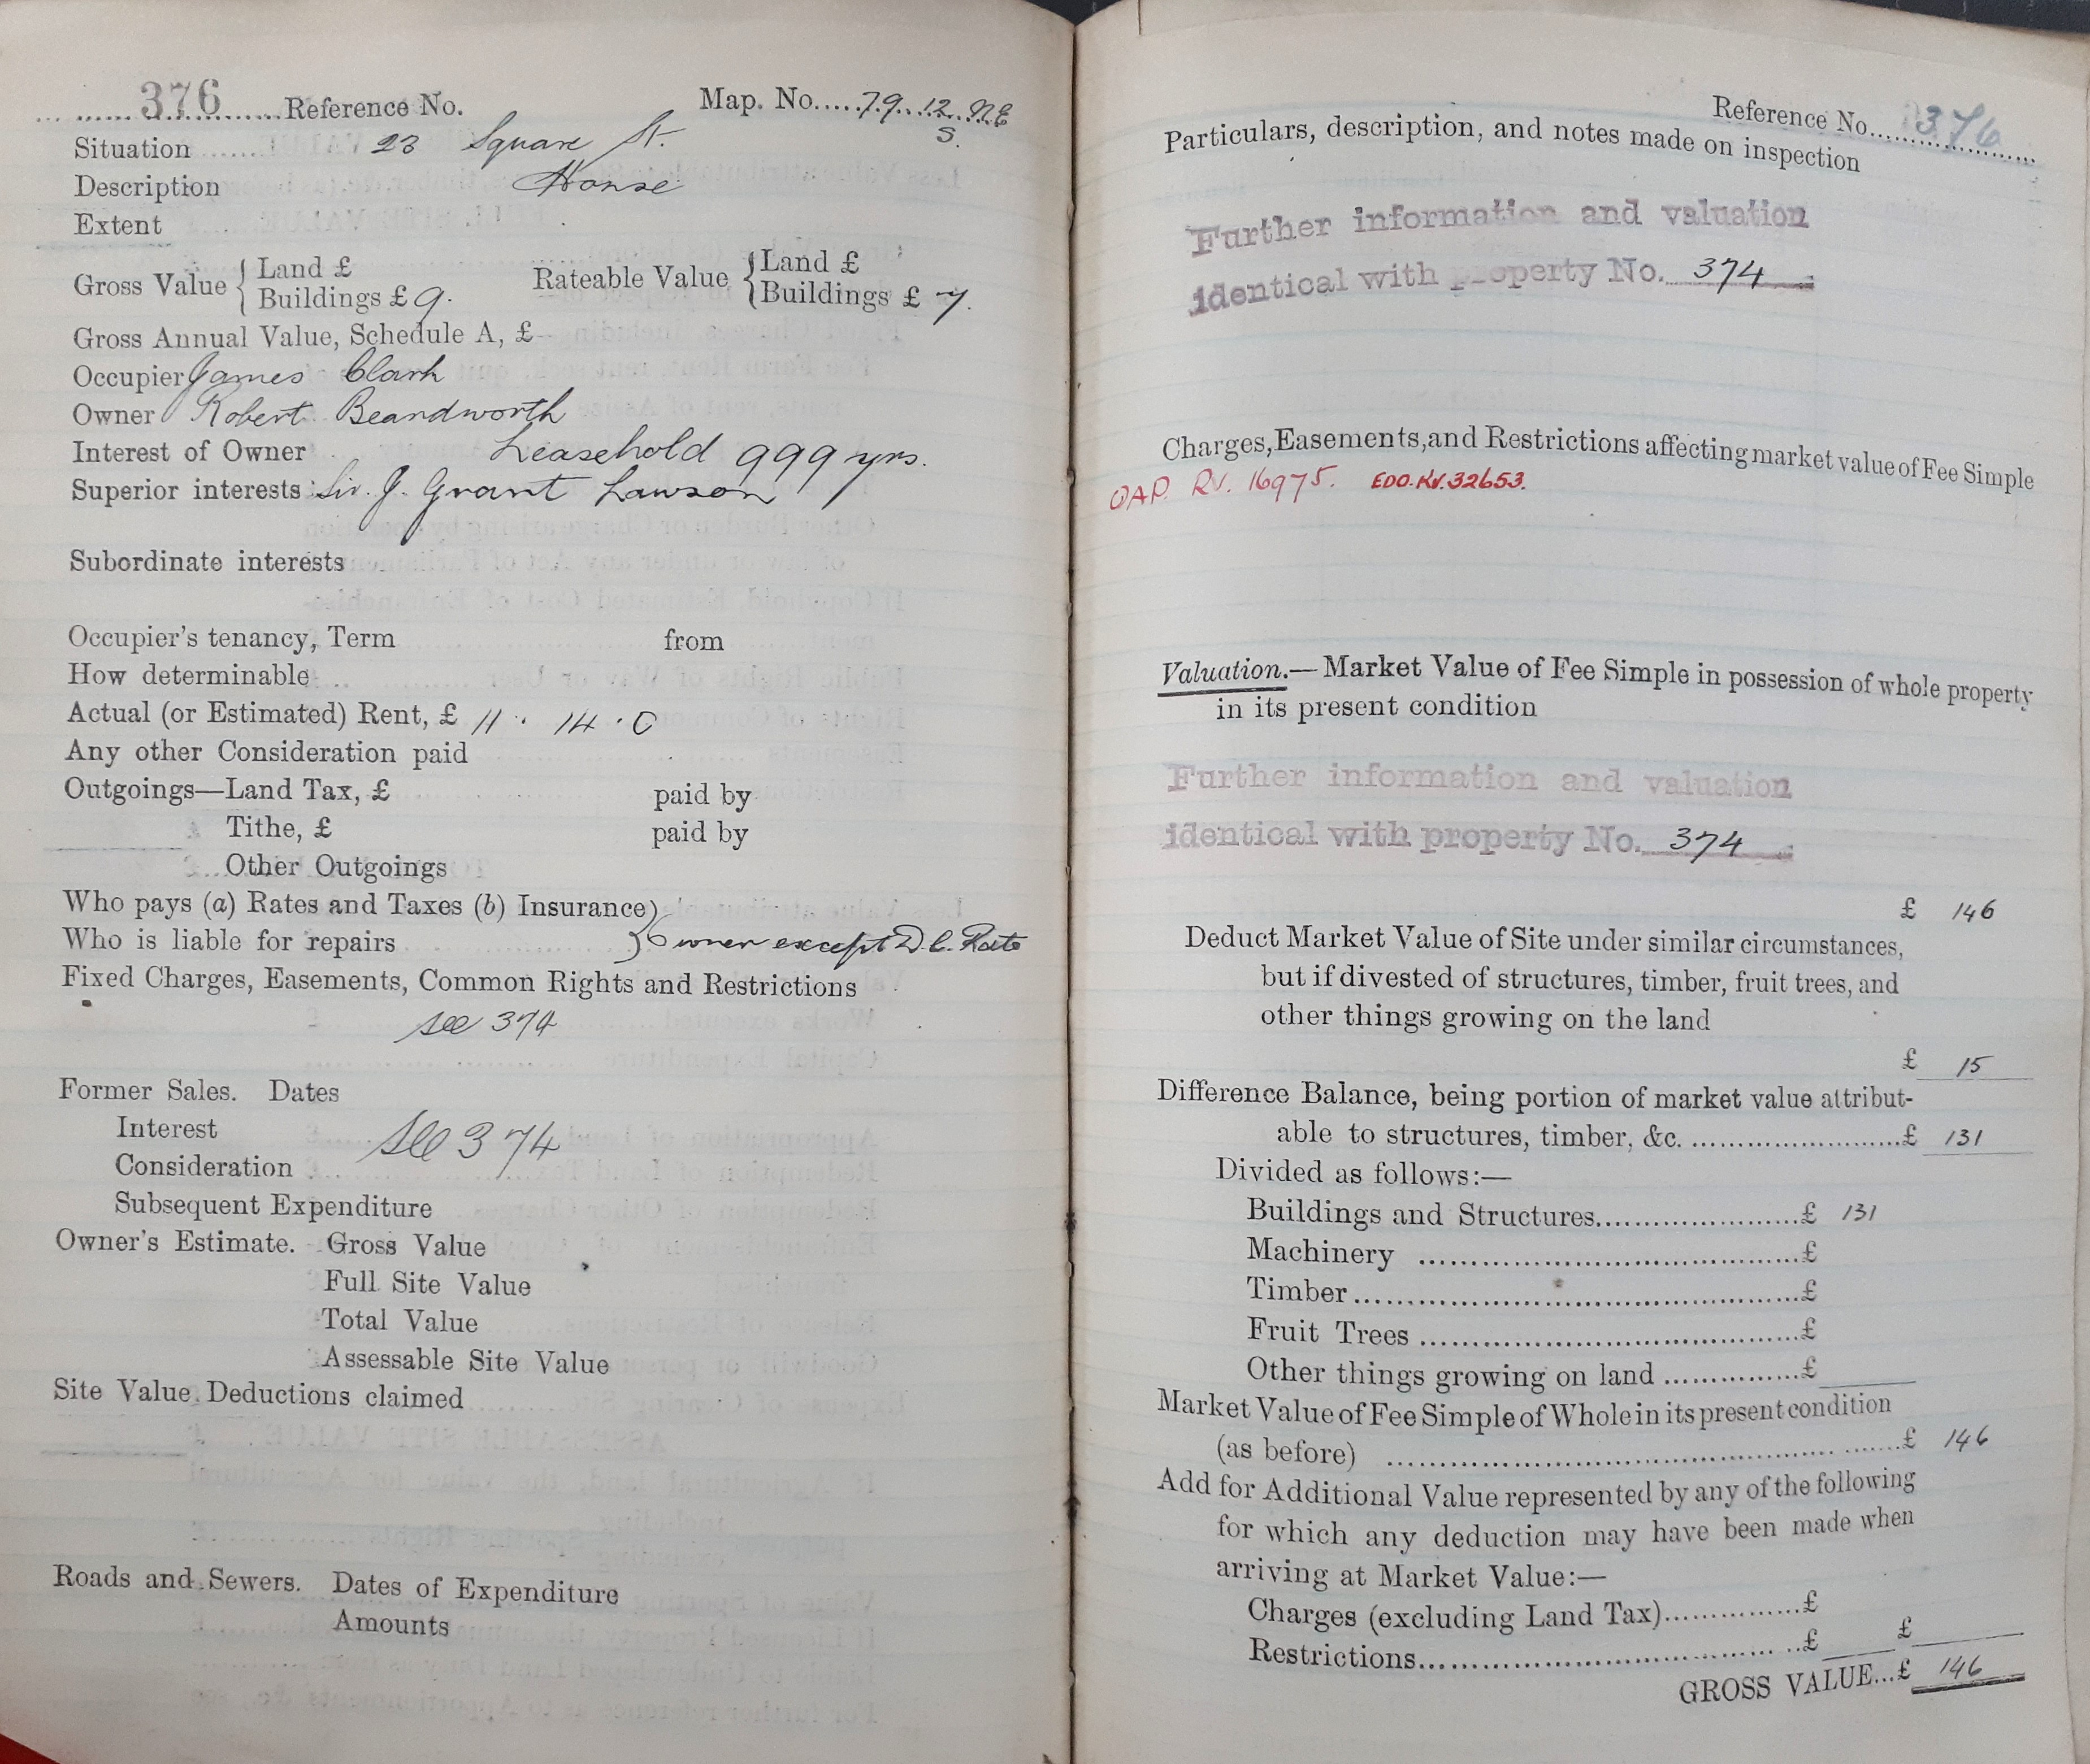 376 Reference No. Map. No. 79. 12. N.E
S.
Situation 23 Square St.
Description House
Extent
Gross Value { Land £ Rateable Value { Land £
Buildings £ 9. Buildings £ 7.
Gross Annual Value, Schedule A, £
Occupier James Clark
Owner Robert Beardworth
Interest of Owner Leasehold 999 yrs.
Superior interests Sir. J. Grant Lawson
Subordinate interests
Occupier's tenancy, Term from
How determinable
Actual (or Estimated) Rent, £ 11 . 14 . 0
Any other Consideration paid
Outgoings—Land Tax, £ paid by
Tithe, £ paid by
Other Outgoings
Who pays (a) Rates and Taxes (b) Insurance }
Who is liable for repairs } Owner except D.C. Rate
Fixed Charges, Easements, Common Rights and Restrictions
see 374
Former Sales. Dates
Interest see 374
Consideration
Subsequent Expenditure
Owner's Estimate. Gross Value
Full Site Value
Total Value
Assessable Site Value
Site Value Deductions claimed
Roads and Sewers. Dates of Expenditure
Amounts
Reference No. 376
Particulars, description, and notes made on inspection
Further information and valuation
identical with property No. 374
Charges, Easements, and Restrictions affecting market value of Fee Simple
OAP. RV. 16975. EDO.RV.32653.
Valuation.— Market Value of Fee Simple in possession of whole property
in its present condition
Further information and valuation
identical with property No. 374
£ 146
Deduct Market Value of Site under similar circumstances,
but if divested of structures, timber, fruit trees, and
other things growing on the land
£ 15
Difference Balance, being portion of market value attribut-
able to structures, timber, &c. £ 131
Divided as follows:—
Buildings and Structures £ 131
Machinery £
Timber £
Fruit Trees £
Other things growing on land £
Market Value of Fee Simple of Whole in its present condition
(as before) £ 146
Add for Additional Value represented by any of the following
for which any deduction may have been made when
arriving at Market Value:—
Charges (excluding Land Tax) £
Restrictions £ £
GROSS VALUE...£ 146